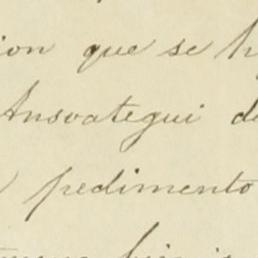 ion que se h
Ansoategui de
pedimento